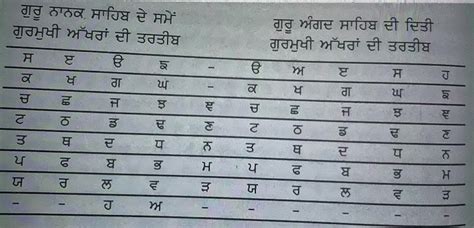 ਗੁਰੂ ਨਾਨਕ ਸਾਹਿਬ ਦੇ ਸਮੇਂ ਗੁਰੂ ਅੰਗਦ ਸਾਹਿਬ ਦੀ ਦਿਤੀ
ਗੁਰਮੁਖੀ ਅੱਖਰਾਂ ਦੀ ਤਰਤੀਬ ਗੁਰਮੁਖੀ ਅੱਖਰਾਂ ਦੀ ਤਰਤੀਬ
ਸ ੲ ੳ ਙ - ੳ ਅ ੲ ਸ ਹ
ਕ ਖ ਗ ਘ - ਕ ਖ ਗ ਘ ਙ
ਚ ਛ ਜ ਝ ਞ ਚ ਛ ਜ ਝ ਞ
ਟ ਠ ਡ ਢ ਣ ਟ ਠ ਡ ਢ ਣ
ਤ ਥ ਦ ਧ ਨ ਤ ਥ ਦ ਧ ਨ
ਪ ਫ ਬ ਭ ਮ ਪ ਫ ਬ ਭ ਮ
ਯ ਰ ਲ ਵ ੜ ਯ ਰ ਲ ਵ ੜ
- - ਹ ਅ - - - - - -